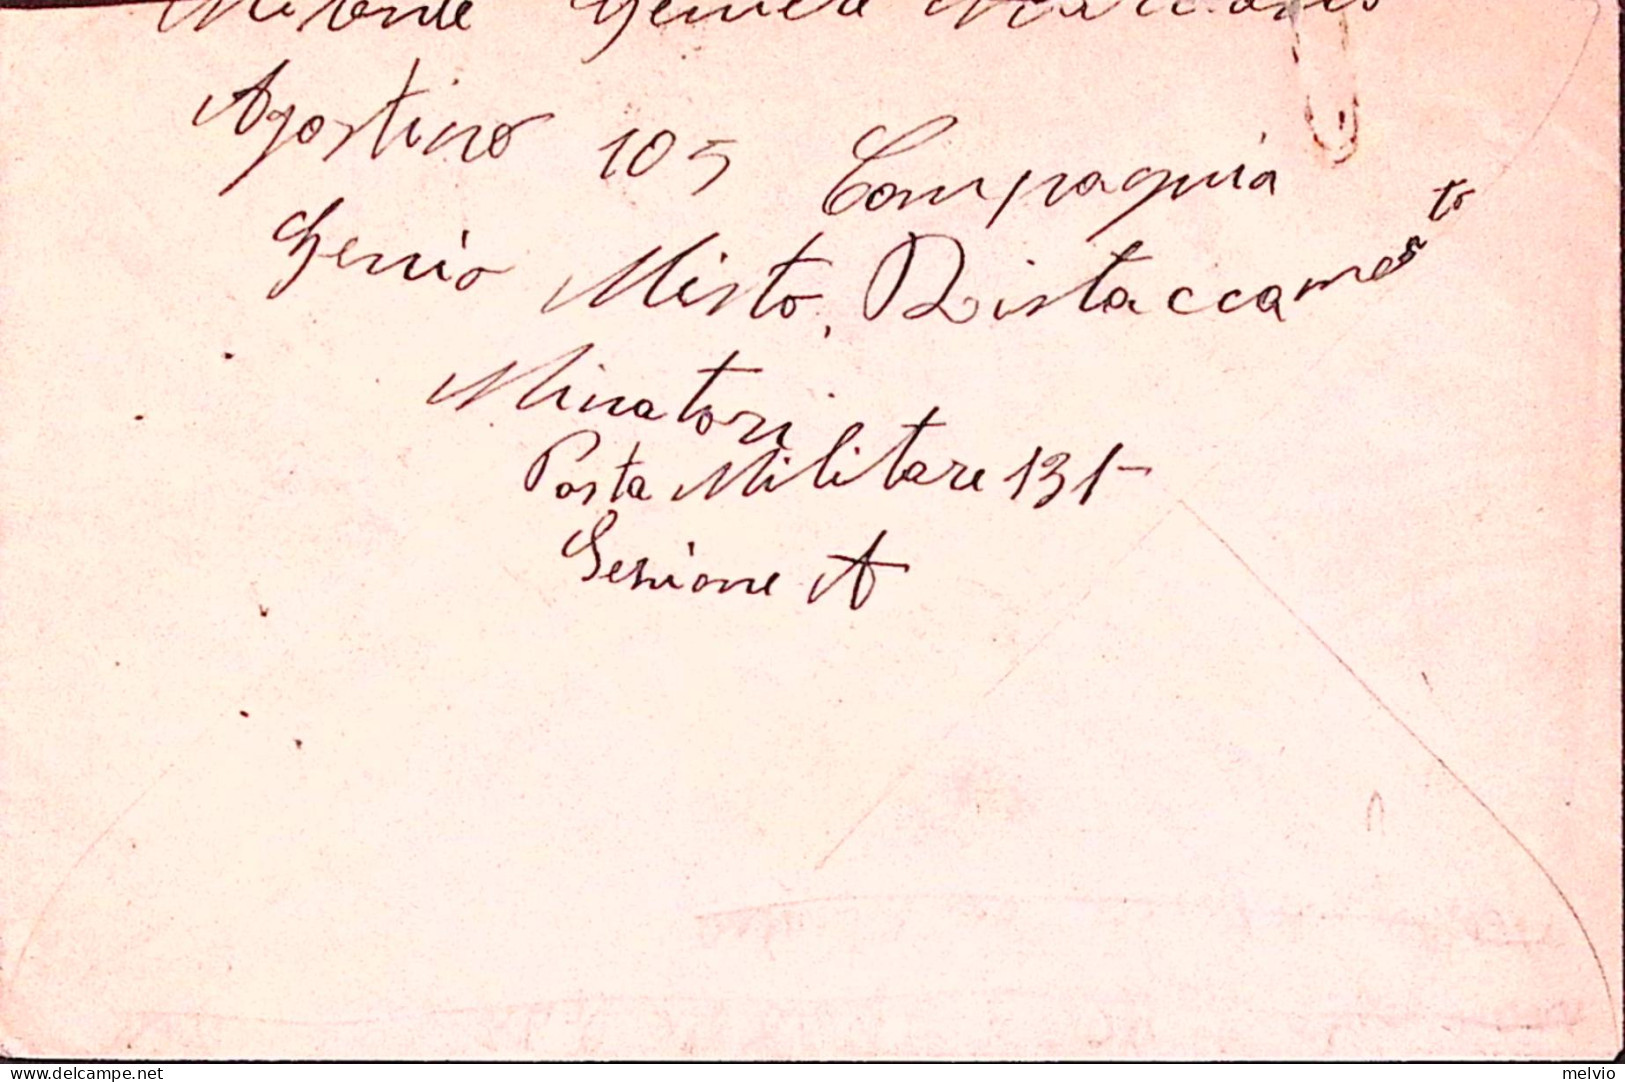 Agostino 105 Compagnia
Genio Misto, Distaccamento
Minatori
Posta Militare 131
Sezione A
www.delcampe.net
melvio